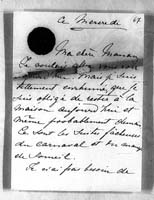 67
Ce Mercredi
Ma chère Maman
Je voulais aller
Mais je suis
tellement enrhumé, que je
suis obligé de rester à la
maison aujourd'hui et
même probablement demain
Ce sont les suites fâcheuses
du carnaval et du manque
de sommeil.
Je n'ai pas besoin de